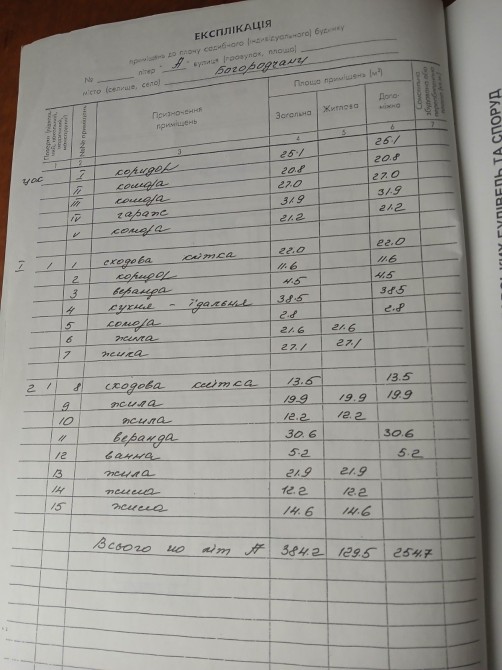 ЕКСПЛІКАЦІЯ
приміщень до плану садибного (індивідуального) будинку
№ літер "А" вулиця (провулок, площа)
місто (селище, село) Богородчани
Призначення приміщень
Площа приміщень (м²)
№№ приміщень
Загальна Житлова Допоміжна
1 2 3 4 5 6 7
цок I коридор 25.1 25.1
II комора 20.8 20.8
III комора 27.0 27.0
IV гараж 31.9 31.9
V комора 21.2 21.2
I 1 1 сходова клітка 22.0 22.0
2 коридор 11.6 11.6
3 веранда 4.5 4.5
4 кухня - їдальня 38.5 38.5
5 комора 2.8 2.8
6 жила 21.6 21.6
7 жила 27.1 27.1
2 1 8 сходова клітка 13.5 13.5
9 жила 19.9 19.9 19.9
10 жила 12.2 12.2
11 веранда 30.6 30.6
12 ванна 5.2 5.2
13 жила 21.9 21.9
14 жила 12.2 12.2
15 жила 14.6 14.6
Всього по літ А 384.2 129.5 254.7
БУДІВЕЛЬ ТА СПОРУД